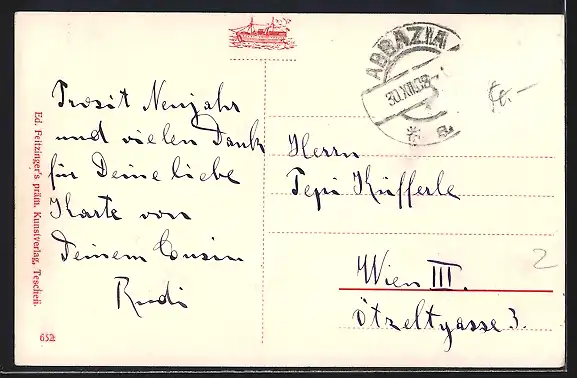 Prosit Neujahr
und vielen Dank
für Deine liebe
Karte von
Deinem Cousin
Rudi
Herrn
Pepi Küfferle
Wien III.
Ötzeltgasse 3.
ABBAZIA
30.XII.08
Ed. Feitzinger's präm. Kunstverlag, Teschen.
652
2